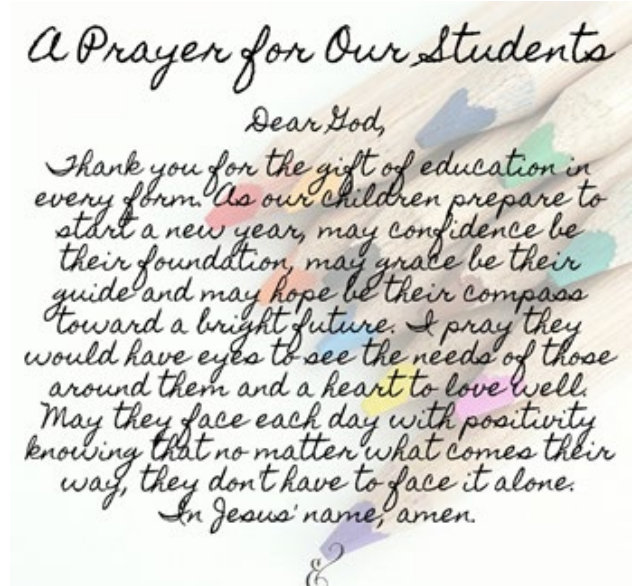 A Prayer for Our Students
Dear God,
Thank you for the gift of education in
every form. As our children prepare to
start a new year, may confidence be
their foundation, may grace be their
guide and may hope be their compass
toward a bright future. I pray they
would have eyes to see the needs of those
around them and a heart to love well.
May they face each day with positivity
knowing that no matter what comes their
way, they don't have to face it alone.
In Jesus' name, amen.
&